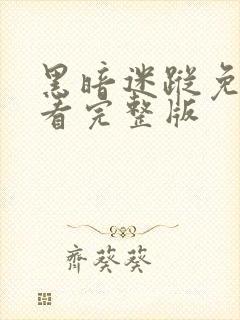 黑暗迷蹤免
看完整版
齊葵葵